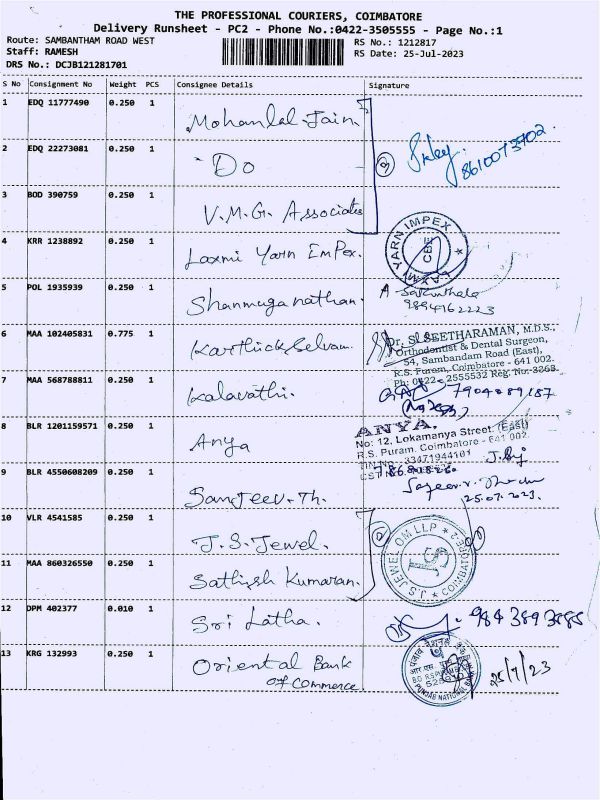 THE PROFESSIONAL COURIERS, COIMBATORE
Delivery Runsheet - PC2 - Phone No.:0422-3505555 - Page No.:1
Route: SAMBANTHAM ROAD WEST
RS No.: 1212817
Staff: RAMESH
RS Date: 25-Jul-2023
DRS No.: DCJB121281701
S No Consignment No Weight PCS Consignee Details Signature
1 EDQ 11777490 0.250 1 Mohanlal Jain
2 EDQ 22273081 0.250 1 "Do
8610073702
3 BOD 390759 0.250 1 V.M.G. Associates
4 KRR 1238892 0.250 1 Laxmi Yarn Impex.
LAXMI YARN IMPEX
CBE
5 POL 1935939 0.250 1 Shanmuganathan.
A Sakunthala
9894162223
6 MAA 102405831 0.775 1 Karthick Selvam
Dr. SL SEETHARAMAN, M.D.S.,
Orthodontist & Dental Surgeon,
54, Sambandam Road (East),
R.S. Puram, Coimbatore - 641 002.
Ph: 0422-2555532 Reg. No: 3268
7 MAA 568788811 0.250 1 Kalavathi.
7904089187
8 BLR 1201159571 0.250 1 Anya
ANYA.
No: 12, Lokamanya Street, (East)
R.S. Puram, Coimbatore - 641 002.
9 BLR 4550608209 0.250 1 Sanjeev. Th.
25.07.2023.
10 VLR 4541585 0.250 1 J.S. Jewel.
J.S.JEWEL OM LLP
COIMBATORE-2
JS
11 MAA 860326550 0.250 1 Sathish Kumaran.
12 DPM 402377 0.010 1 Sri Latha.
9843893885
13 KRG 132993 0.250 1 Oriental Bank
of Commerce
PUNJAB NATIONAL BANK
25/7/23